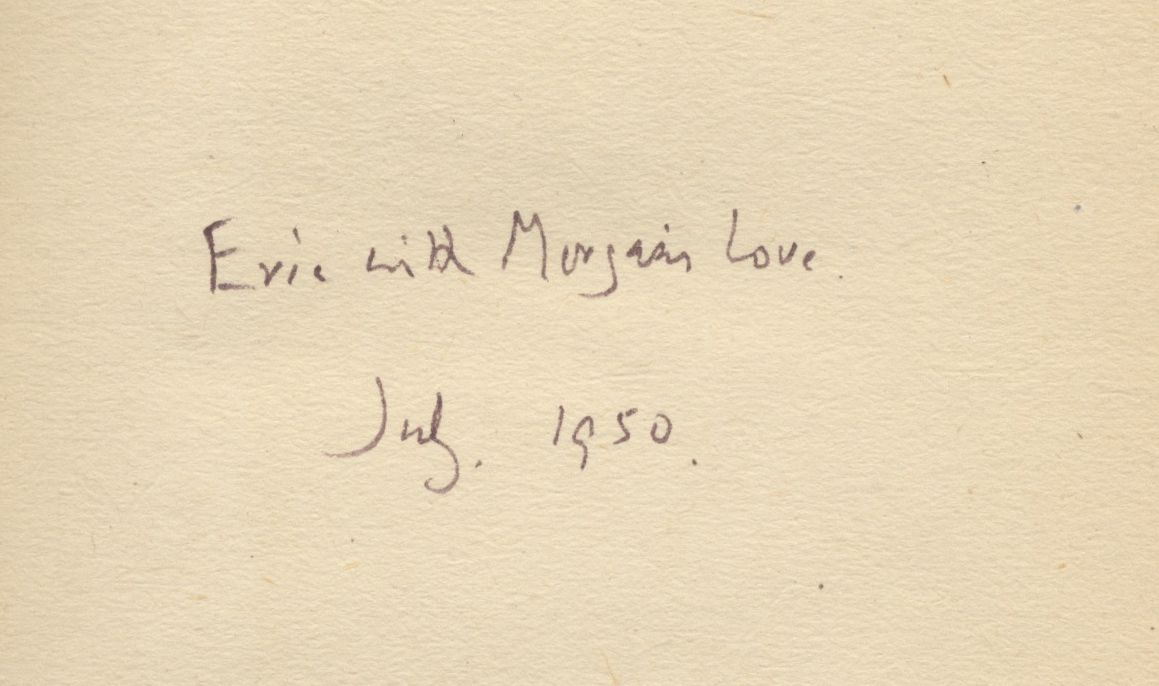 Eric with Morgan's Love.
July. 1950.